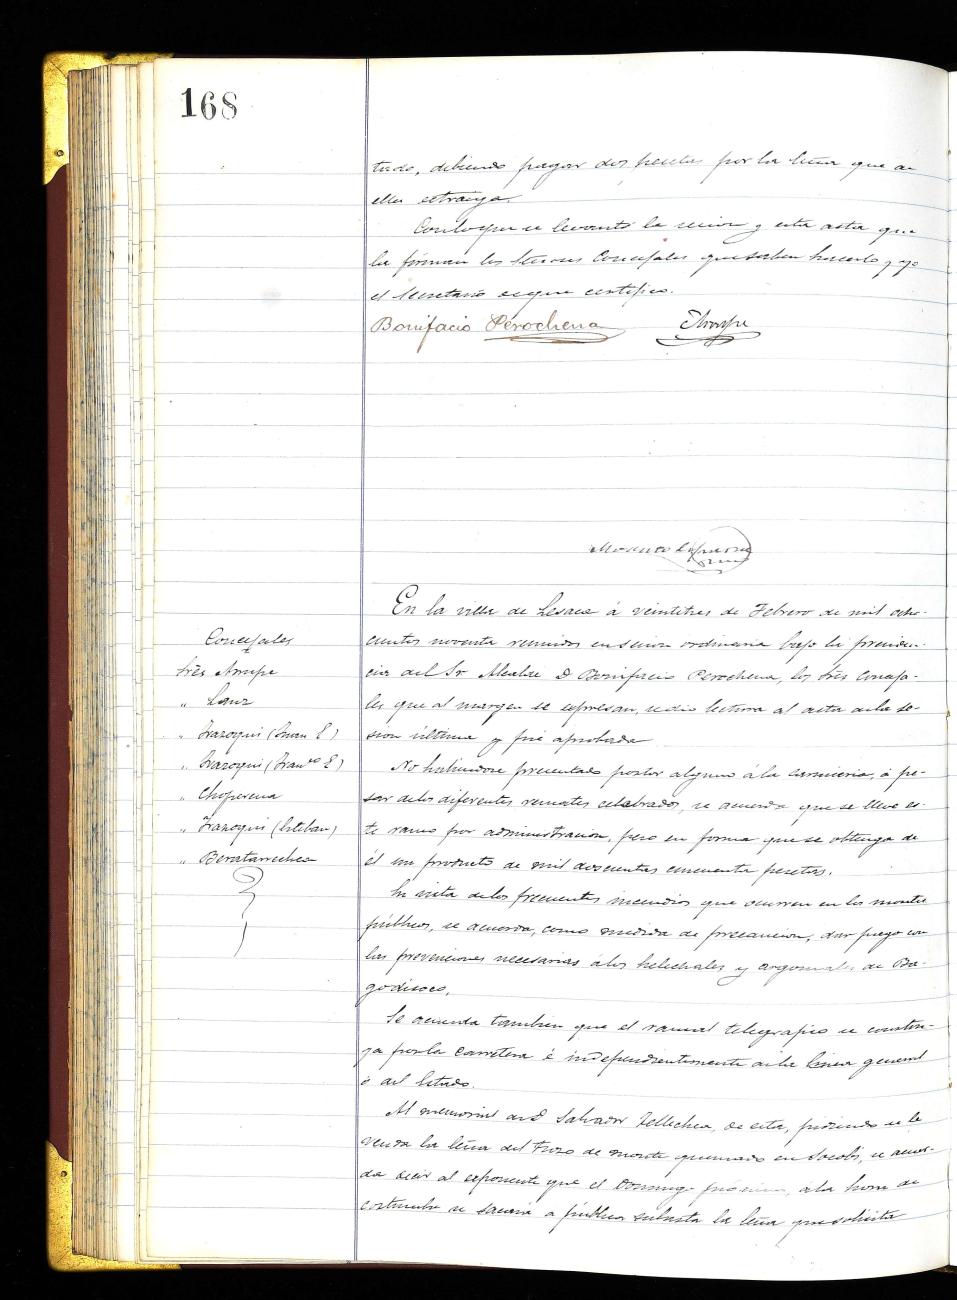 168
tudo, debiendo pagar dos pesetas por la leña que de
ella extraiga.
Con lo que se levantó la sesion y esta acta que
la firman los Señores Concejales que saben hacerlo, y yo
el Secretario de que certifico.
Bonifacio Perochena
En la villa de Lesaca á veintitres de Febrero de mil ocho-
cientos noventa reunidos en sesion ordinaria bajo la presiden-
cia del Sr. Alcalde D. Bonifacio Perochena, los Sres Conceja-
les que al margen se expresan, se dió lectura al acta de la se-
sion última y fué aprobada
Concejales
Sres Arrupe
" Lanz
" Irazoqui (Juan E.)
" Irazoqui (Franco E.)
" Choperena
" Irazoqui (Esteban)
" Beratarrechea
No habiendose presentado postor alguno á la carniceria, á pe-
sar de los diferentes remates celebrados, se acuerda que se lleve es-
te ramo por administracion, pero en forma que se obtenga de
él un producto de mil doscientas cincuenta pesetas.
En vista de los frecuentes incendios que ocurren en los montes
públicos, se acuerda, como medida de precaucion, dar fuego con
las prevenciones necesarias á los helechales y argomales de
Se acuerda tambien que el ramal telegrafico se constru-
ya por la carretera é independientemente de la linea general
ó del Estado.
Al memorial de D. Salvador Tellechea, de esta, pidiendo se le
venda la leña del trozo de monte quemado en se acuer-
da decir al exponente que el Domingo próximo, á la hora de
costumbre se sacará a pública subasta la leña que solicita